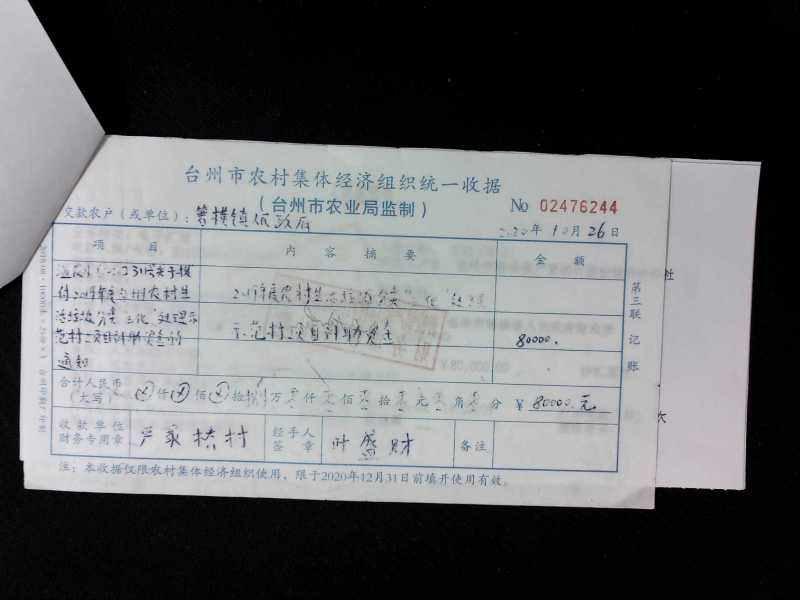 台州市农村集体经济组织统一收据
(台州市农业局监制)
No 02476244
交款农户(或单位): 箬横镇人民政府
2020年10月26日
项目 内容摘要 金额
拨付2019年度台州农村生
2019年度农村生活垃圾分类"三化"处理
活垃圾分类"三化"处理示
示范村项目补助资金 80000.
范村项目补助资金的
通知
合计人民币
(大写) 仟 佰 拾 捌 万 零 仟 零 佰 零 拾 零 元 零 角 零 分 ¥ 80000.元
收款单位
财务专用章
严家桥村
经手人
签章
叶盛财
备注
注:本收据仅限农村集体经济组织使用,限于2020年12月31日前填开使用有效。
第三联 记账
社